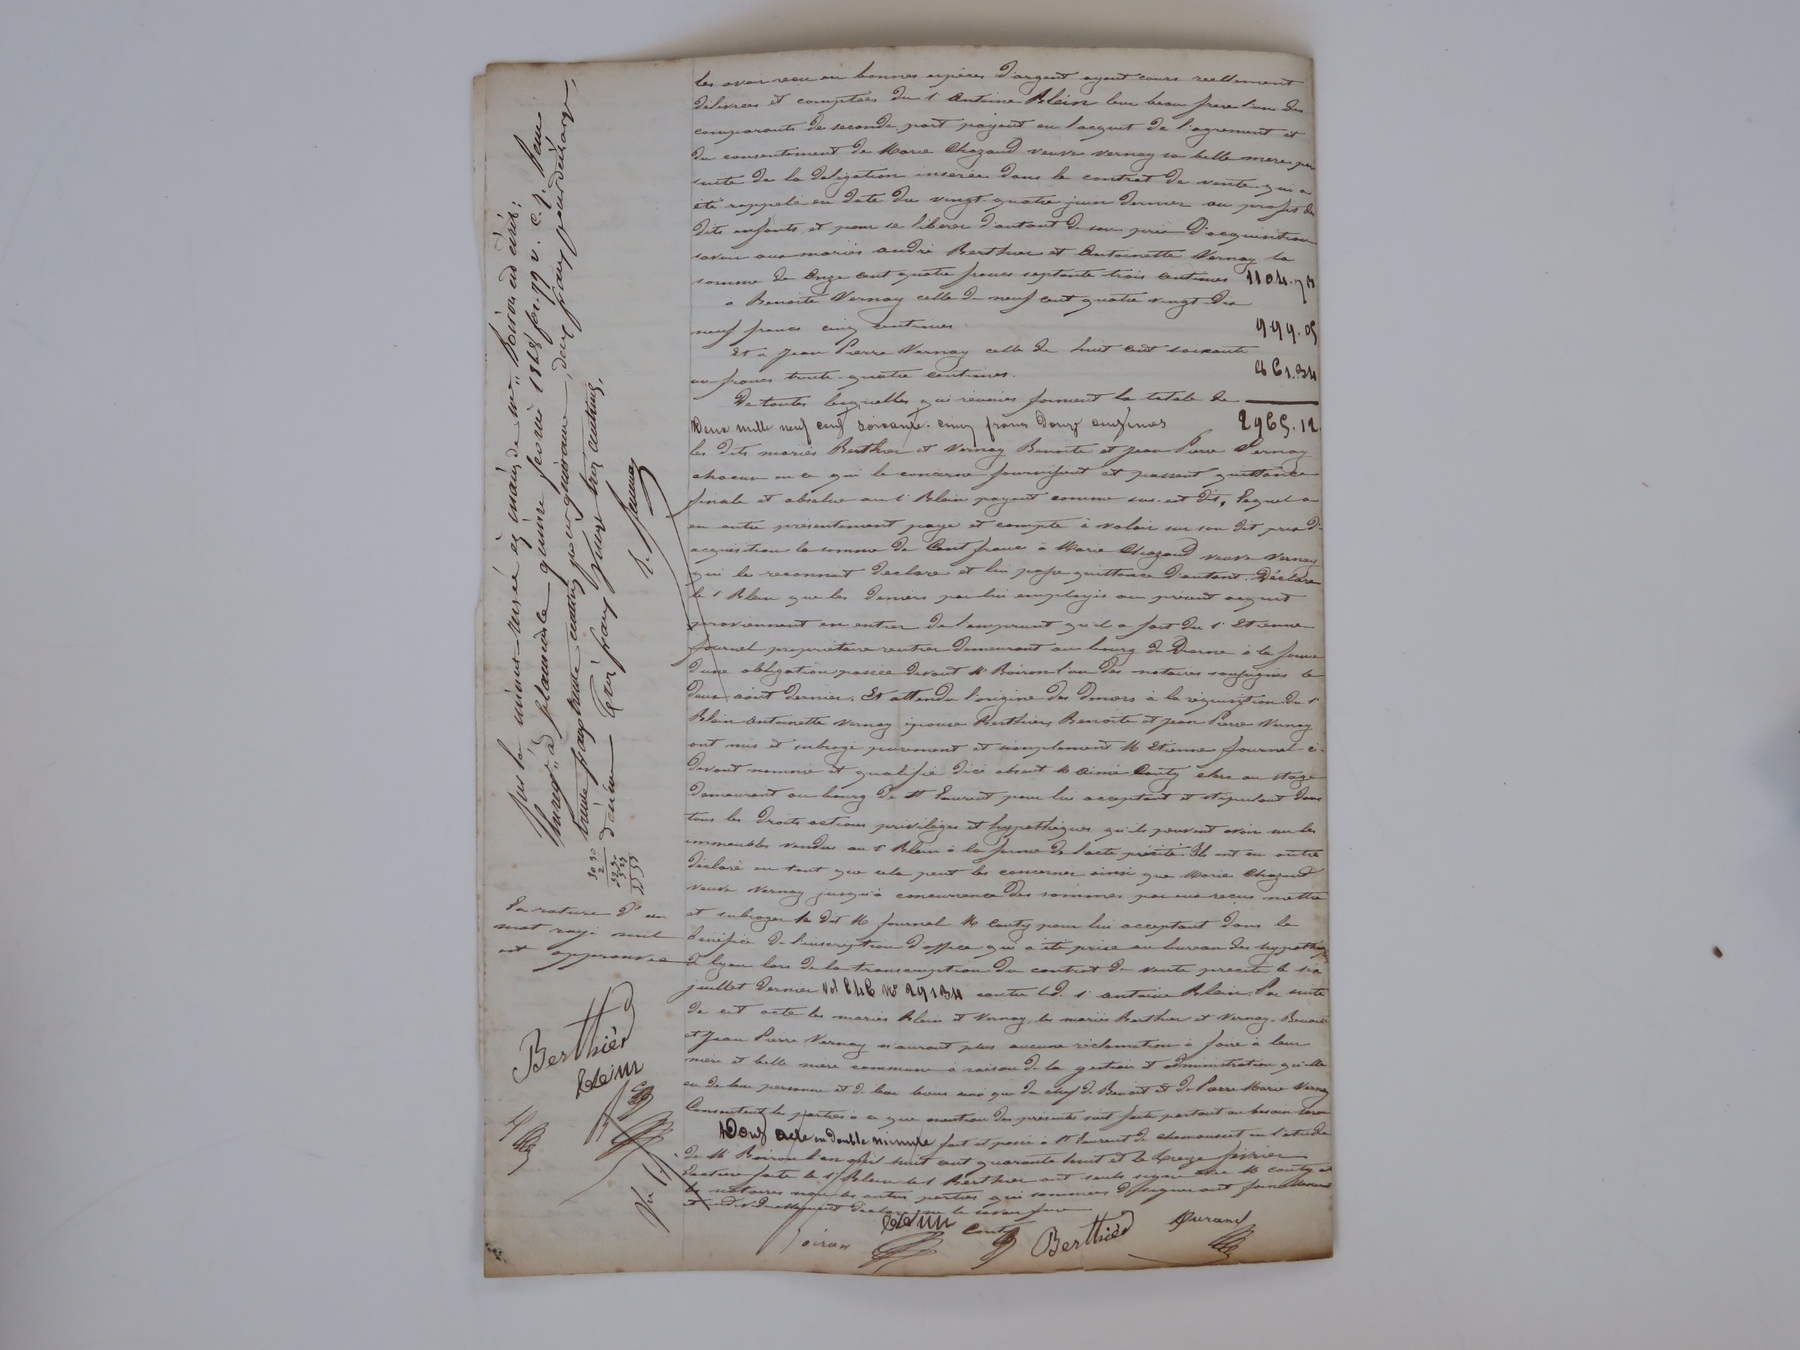 les avoir reçu en bonnes espèces d'argent ayant cours réellement
délivrées et comptées du s. Antoine Blein leur beau frère l'un des
comparants de seconde part payant en l'acquit de l'agrément et
du consentement de Marie Chazaud veuve Vernay sa belle mère par
suite de la délégation insérée dans le contrat de vente qui a
été rappelé en date du vingt-quatre juin dernier au profit des
dits enfants, et pour se libérer d'autant de son prix d'acquisition
savoir aux mariés andré Berthier et Antoinette Vernay la
somme de Onze cent quatre francs septante trois centimes 1104.73
à Benoite Vernay celle de neuf cent quatre vingt dix
neuf francs cinq centimes 999.05
Et à Jean Pierre Vernay celle de huit cent soixante
un francs trente-quatre centimes. 861.34
De toutes lesquelles qui réunies forment la totale de
Deux mille neuf cent soixante-cinq francs douze centimes 2965.12
les dits mariés Berthier et Vernay Benoite et Jean Pierre Vernay
chacun en ce qui le concerne fournissent et passent quittance
finale et absolue au s. Blein payant comme sus-est dit, lequel a
en outre présentement payé et compté à valoir sur son dit prix d'
acquisition la somme de Cent francs à Marie Chazaud veuve Vernay
qui le reconnait déclare et lui passe quittance d'autant. Déclare
le s. Blein que les deniers par lui employés au présent acquit
proviennent en entier de l'emprunt qu'il a fait du s. Etienne
Journel propriétaire rentier demeurant au bourg de à la forme
d'une obligation passée devant Me Boiron l'un des notaires soussignés le
deux août dernier. Et attendu l'origine des deniers à la réquisition du s.
Blein Antoinette Vernay épouse Berthier, Benoite et Jean Pierre Vernay
ont mis et subrogé purement et simplement M Etienne Journel ci-
devant nommé et qualifié d'ici absent M Couty clerc au stage
demeurant au bourg de St Laurent pour lui acceptant et stipulant dans
tous les droits actions privilèges et hypothèques qu'ils peuvent avoir sur les
immeubles vendus au s. Blein à la forme de l'acte précité. Ils ont en outre
déclaré en tant que cela peut les concerner ainsi que Marie Chazaud
veuve Vernay jusqu'à concurrence des sommes par eux reçues mettre
et subroger le dit M Journel M Couty pour lui acceptant dans le
bénéfice de l'inscription d'office qui a été prise au bureau des hypothèques
de Lyon lors de la transcription du contrat de vente précité le six
juillet dernier vol 646 No 29134 contre led. s. antoine Blein. Par suite
de cet acte les mariés Blein et Vernay, les mariés Berthier et Vernay, Benoite
et Jean Pierre Vernay n'auront plus aucune réclamation à faire à leur
mère et belle mère commune à raison de la gestion et administration qu'elle
eu de leur personne et de leur biens ainsi que du chef de Benoit et de Pierre Marie Vernay
Consentent les parties à ce que mention des présentes soit faite partout ou besoin sera
Dont acte en double minute fait et passé à St Laurent de chamousset en l'étude
de Me Boiron l'an mil huit cent quarante huit et le treize février
Lecture faite le s. Blein le s. Berthier ont seuls signé avec M Couty et
les notaires non les autres parties qui sommées de signer ont
et individuellement déclaré ne le savoir faire
Boiron Blein Couty Berthier Durand
Sur la minute restée ès mains de me Boiron est écrit:
Enreg. à quinze février 1848 fo. 99 v. c. 7. Reçu
trente centimes pour quittance, deux francs pour décharge,
décime Trois francs quinze trois centimes,
La rature d'un
mot rayé nul
est approuvée
Berthier
Blein